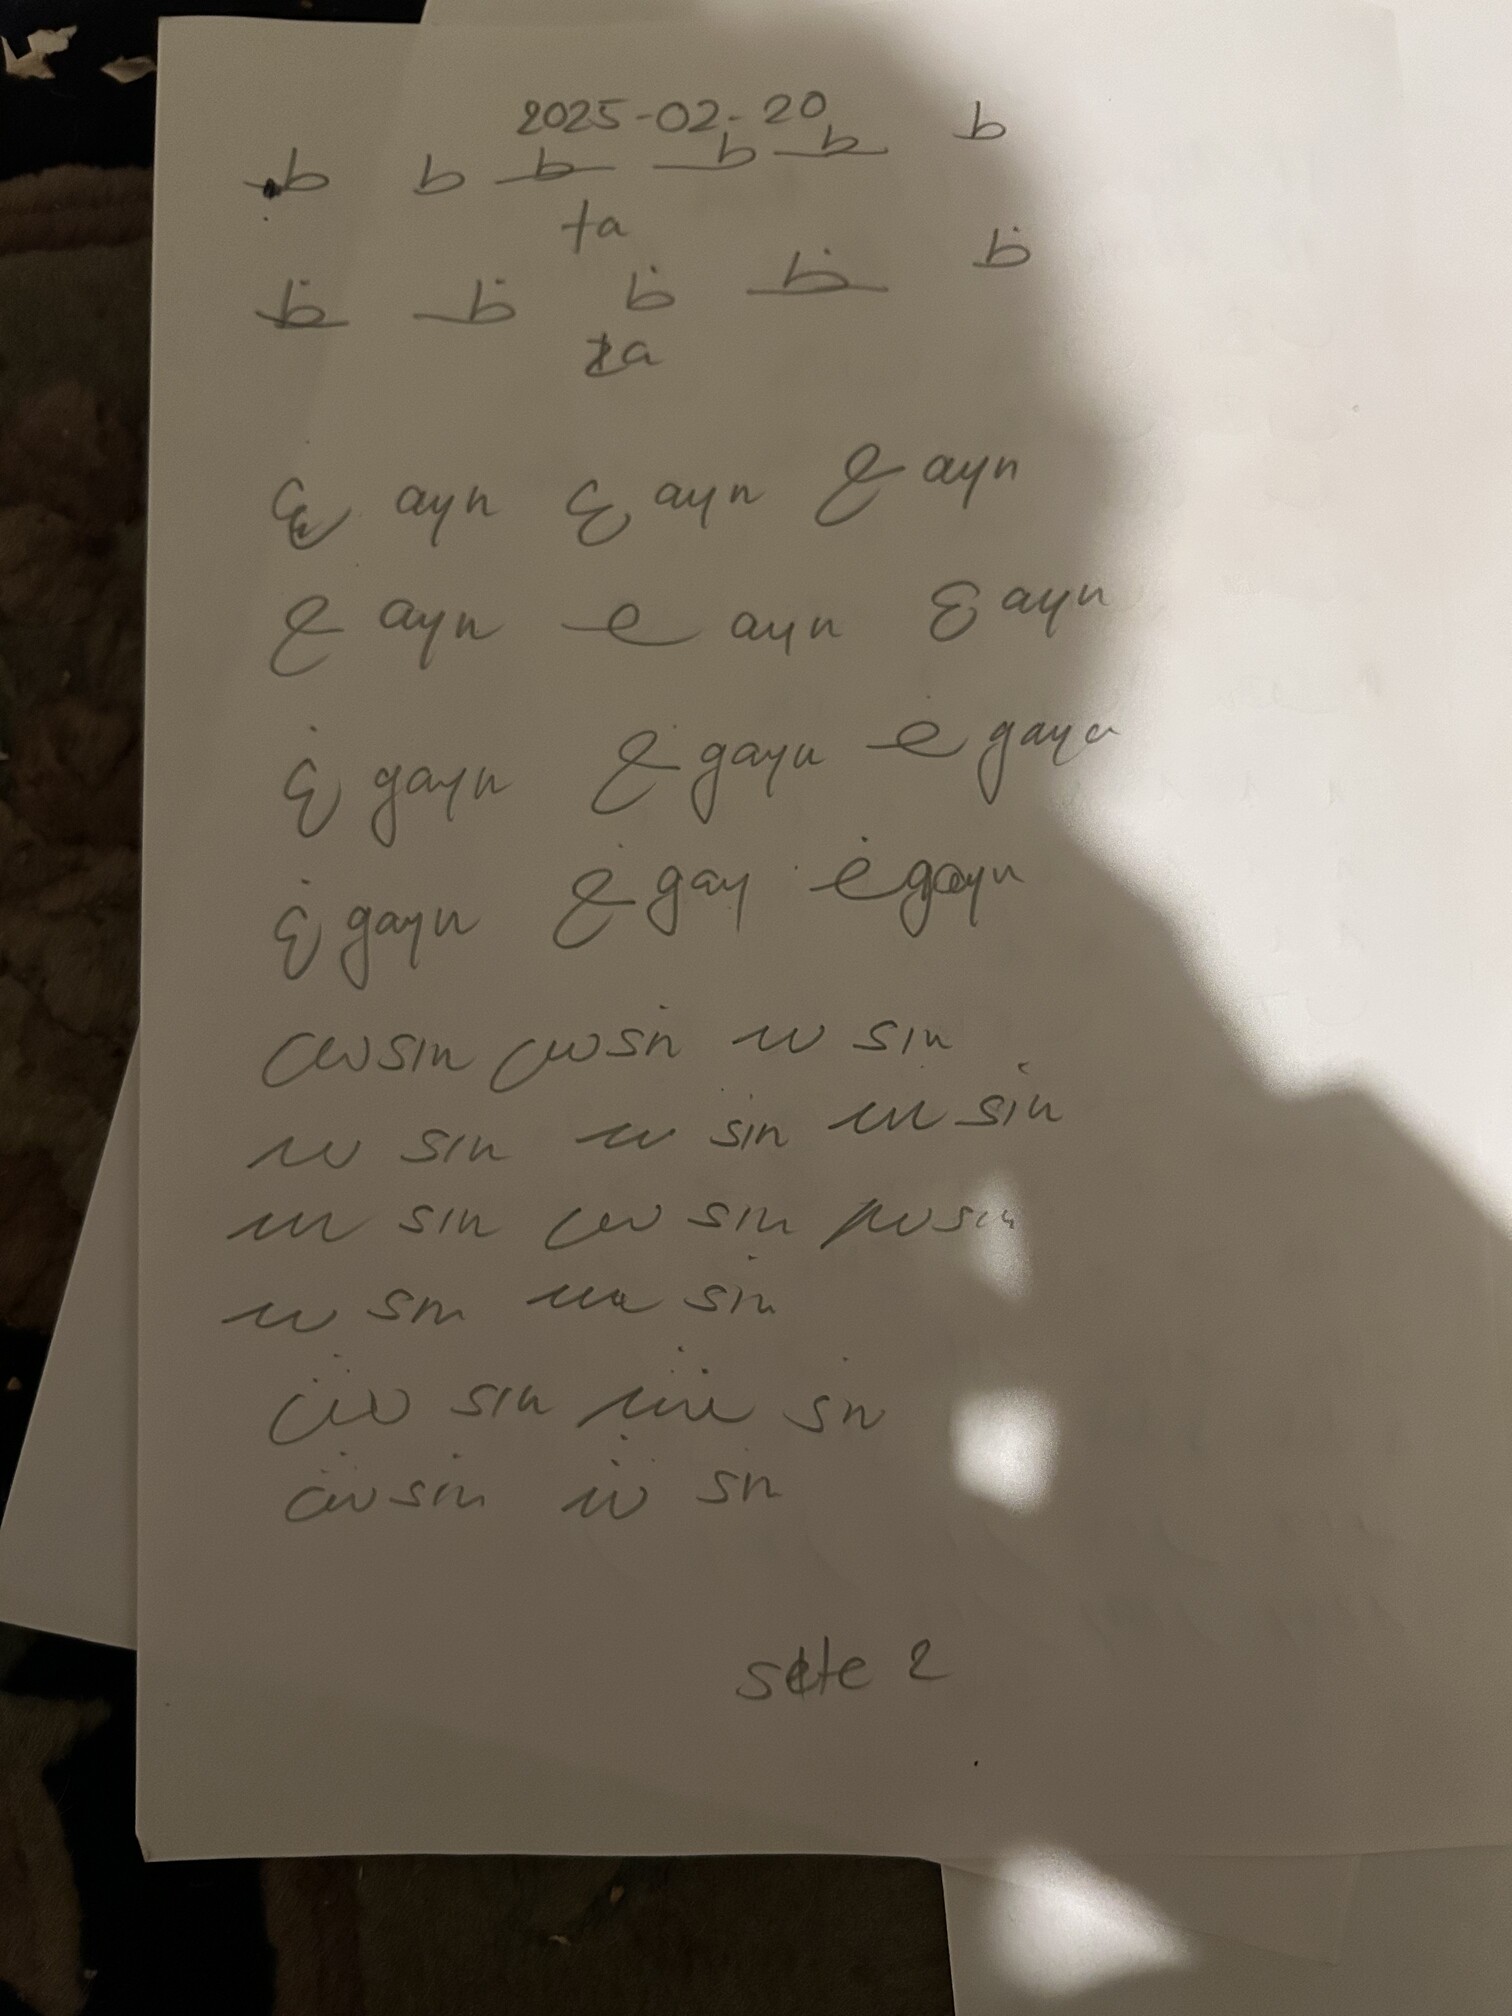 2025-02-20
ط ط ط ط ط ط
ta
ظ ظ ظ ظ ظ
za
ع ayn ع ayn ع ayn
ع ayn ع ayn ع ayn
غ gayn غ gayn غ gayn
غ gayn غ gay غ gayn
س sin س sin س sin
س sin س sin س sin
س sin س sin س sin
س sin س sin
ش sin ش sin
ش sin ش sin
side 2